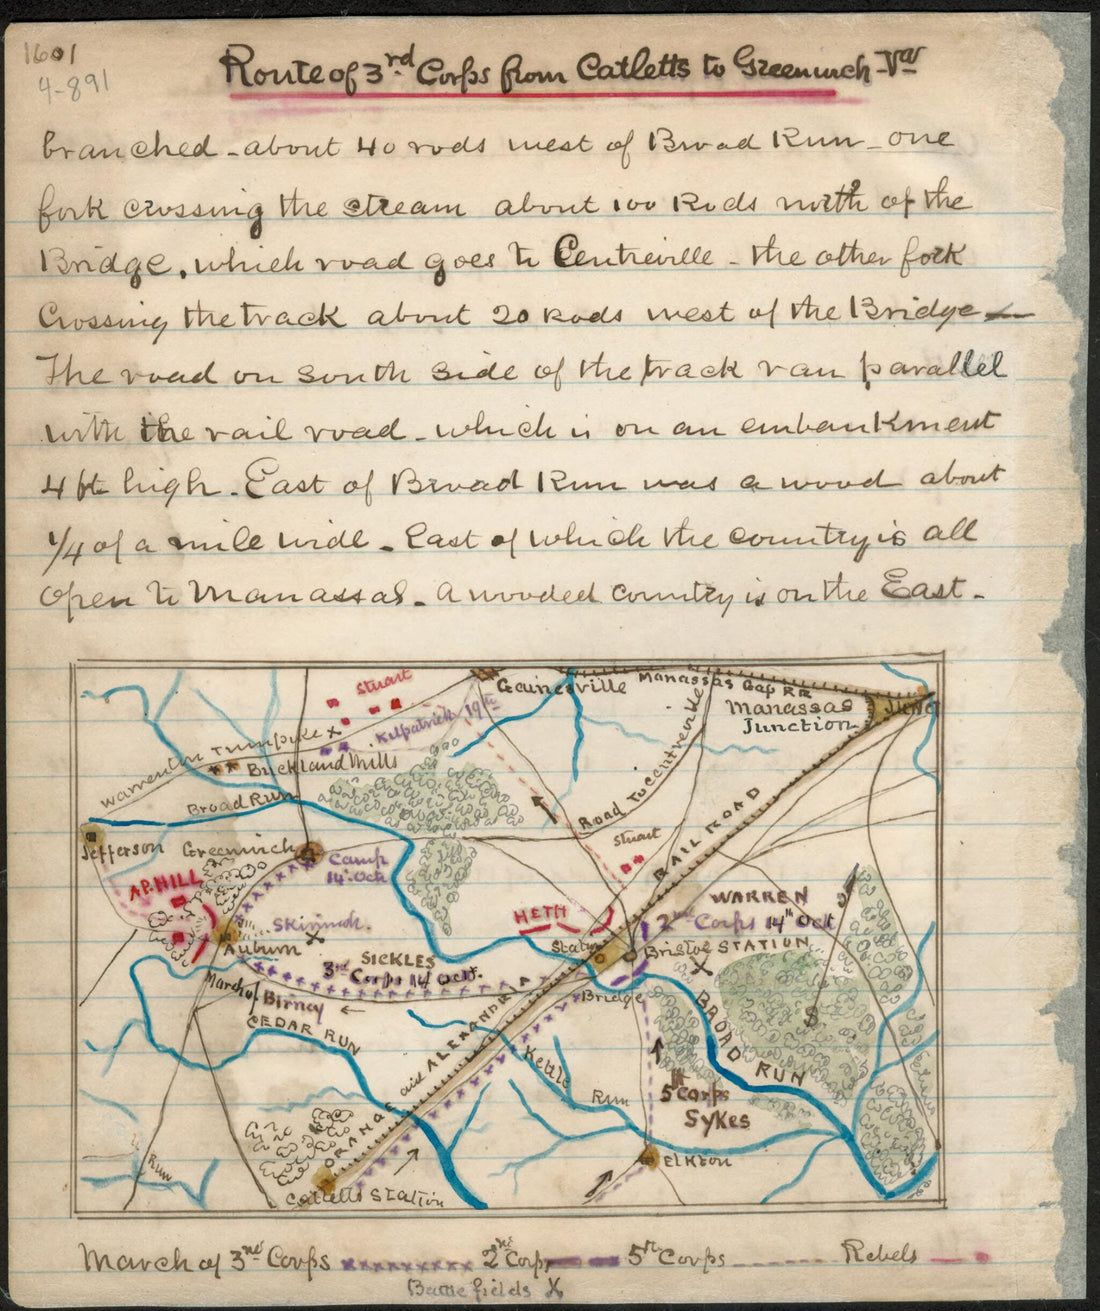 1601
4-891
Route of 3rd Corps from Catletts to Greenwich - Va
branched - about 40 rods west of Broad Run - one
fork crossing the stream about 100 Rods north of the
Bridge, which road goes to Centreville - the other fork
Crossing the track about 20 Rods west of the Bridge -
The road on south side of the track ran parallel
with the rail road - which is on an embankment
4 ft high. East of Broad Run was a wood about
1/4 of a mile wide - East of which the country is all
open to Manassas. A wooded country is on the East -
Stuart
Gainesville
Manassas Gap RR
Manassas
Junction
Junc
Kilpatrick 19th
Warrenton Turnpike X
Buckland Mills
Broad Run
Road to Centreville
Jefferson
Greenwich
Camp
14 Oct
Stuart
RAIL ROAD
A.P. HILL
Skirmish.
X
Auburn
HETH
WARREN
2nd Corps 14th Oct
Station
Bristoe STATION
X
SICKLES
3rd Corps 14 Oct.
March of Birney
Bridge
CEDAR RUN
ORANGE and ALEXANDRIA
BROAD RUN
Kettle Run
5th Corps
Sykes
Elkton
Run
Catletts Station
March of 3rd Corps
2nd Corps
5th Corps
Rebels
Battle fields X